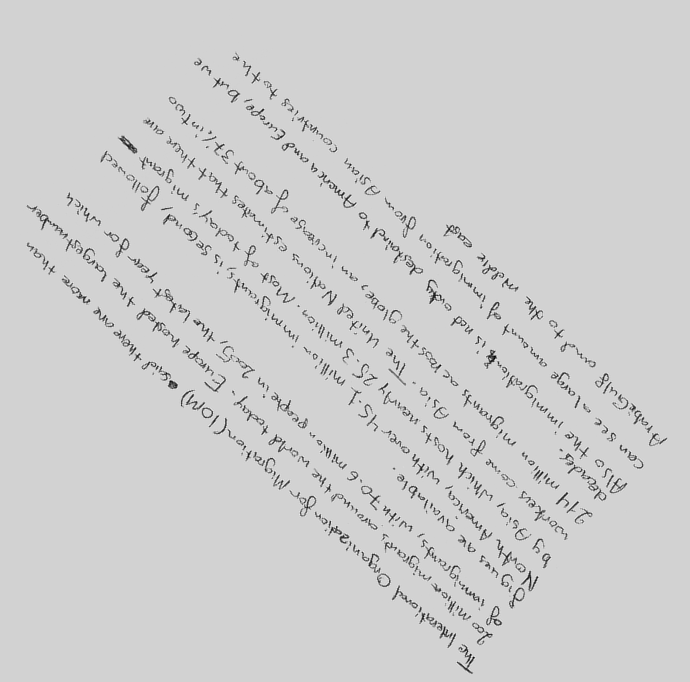 The Interational Organization for Migration (IOM) said there are more than
200 million migrants around the world today. Europe hosted the largest number
of immigrants, with 70.6 million people in 2005, the latest year for which
figures are available.
North America, with over 45.1 million immigrants, is second, followed
by Asia, which hosts nearly 25.3 million. Most of today's migrant
workers come from Asia. The United Nations estimates that there are
214 million migrants across the globe, an increase of about 37% in two
decades.
Also the immigration is not only destaind to America and Europe, but we
can see a large amount of immigration from Asian countries to the
ArabeGulf and to the meddle east